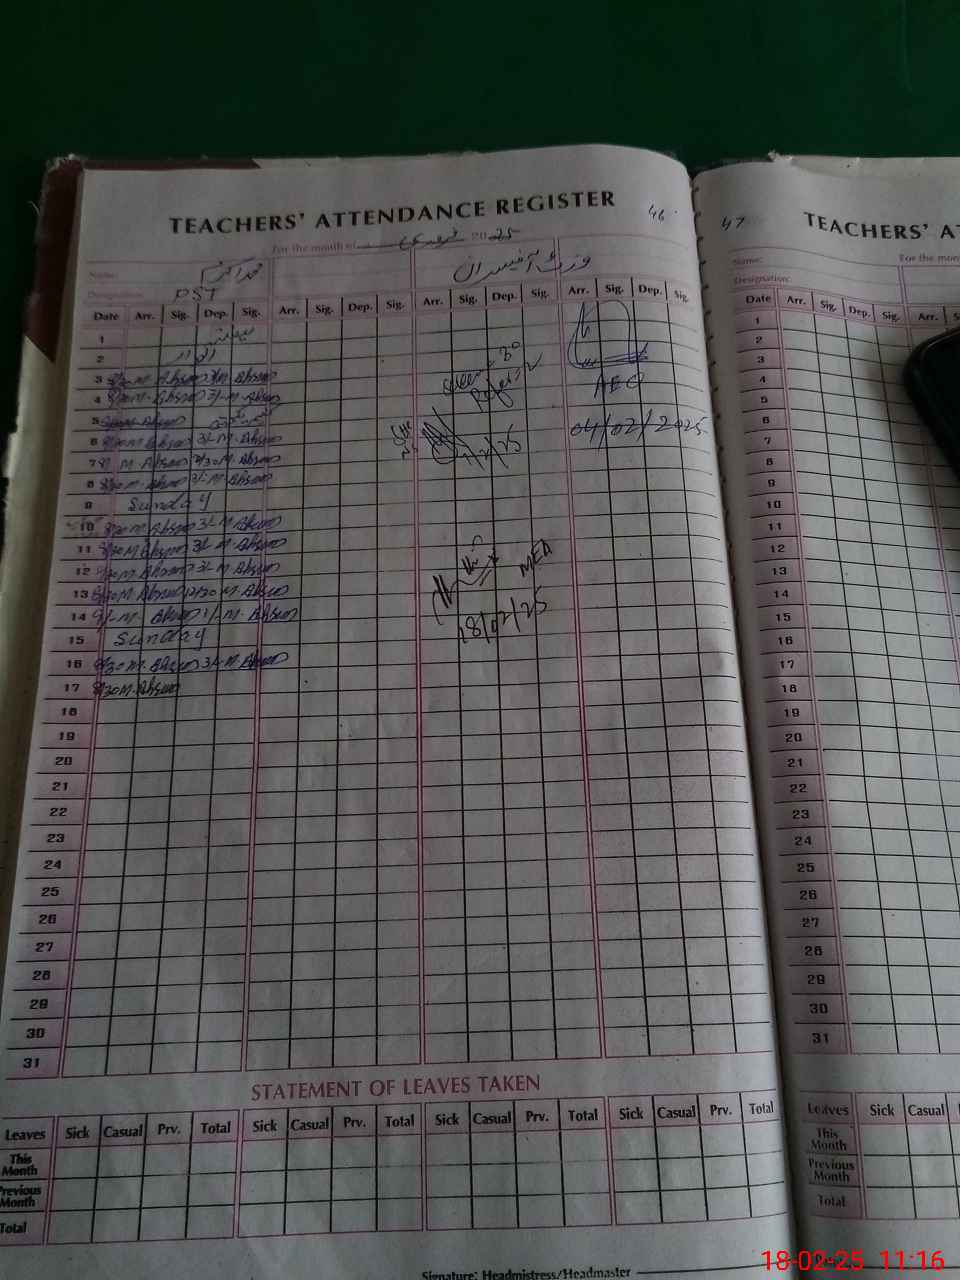 TEACHERS' ATTENDANCE REGISTER 46
For the month of فروری 2025
Name: محمد احسن وزٹ آفیسران
Designation: PST
Date Arr. Sig. Dep. Sig. Arr. Sig. Dep. Sig. Arr. Sig. Dep. Sig. Arr. Sig. Dep. Sig.
1
2 اتوار
3 8/30 M. Ahsan 3/- M. Ahsan
4 8/30 M. Ahsan 3/- M. Ahsan
5
6 8/30 M. Ahsan 3/- M. Ahsan
7 M. Ahsan 12/30 M. Ahsan
8 8/30 M. Ahsan 3/- M. Ahsan
9 Sunday
10 8/30 M. Ahsan 3/- M. Ahsan
11 8/30 M. Ahsan 3/- M. Ahsan
12 8/30 M. Ahsan 3/- M. Ahsan
13 8/30 M. Ahsan 12/30 M. Ahsan
14 M. Ahsan 1/- M. Ahsan
15 Sunday
16 8/30 M. Ahsan 3/- M. Ahsan
17 8/30 M. Ahsan
18
19
20
21
22
23
24
25
26
27
28
29
30
31
AEO
04/02/2025
MEA
18/02/25
STATEMENT OF LEAVES TAKEN
Leaves Sick Casual Prv. Total Sick Casual Prv. Total Sick Casual Prv. Total Sick Casual Prv. Total
This Month
Previous Month
Total
Signature: Headmistress/Headmaster
47 TEACHERS' AT
Name: For the mon
Designation:
Date Arr. Sig. Dep. Sig. Arr. Sig.
1
2
3
4
5
6
7
8
9
10
11
12
13
14
15
16
17
18
19
20
21
22
23
24
25
26
27
28
29
30
31
Leaves Sick Casual
This Month
Previous Month
Total
18-02-25 11:16